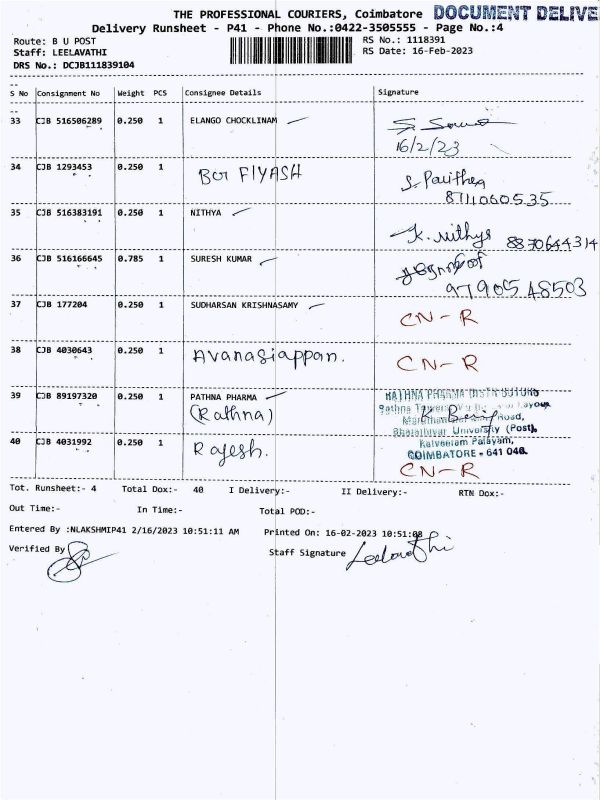 THE PROFESSIONAL COURIERS, Coimbatore DOCUMENT DELIVE
Delivery Runsheet - P41 - Phone No.:0422-3505555 - Page No.:4
Route: B U POST RS No.: 1118391
Staff: LEELAVATHI RS Date: 16-Feb-2023
DRS No.: DCJB111839104
S No Consignment No Weight PCS Consignee Details Signature
33 CJB 516506289 0.250 1 ELANGO CHOCKLINAM
16/2/23
34 CJB 1293453 0.250 1 FIYASH S. Pavithra
8711060535
35 CJB 516383191 0.250 1 NITHYA
K. Nithya 8870644314
36 CJB 516166645 0.785 1 SURESH KUMAR
9790548503
37 CJB 177204 0.250 1 SUDHARSAN KRISHNASAMY CN-R
38 CJB 4030643 0.250 1 Avanasiappan. CN-R
39 CJB 89197320 0.250 1 PATHNA PHARMA RATHNA PHARMA DISTRIBUTORS
(Rathna) Road,
Bharathiyar University (Post),
40 CJB 4031992 0.250 1 Rajesh. Kalveeram Palayam,
COIMBATORE - 641 046.
CN-R
Tot. Runsheet:- 4 Total Dox:- 40 I Delivery:- II Delivery:- RTN Dox:-
Out Time:- In Time:- Total POD:-
Entered By :NLAKSHMIP41 2/16/2023 10:51:11 AM Printed On: 16-02-2023 10:51:08
Verified By Staff Signature Leelavathi